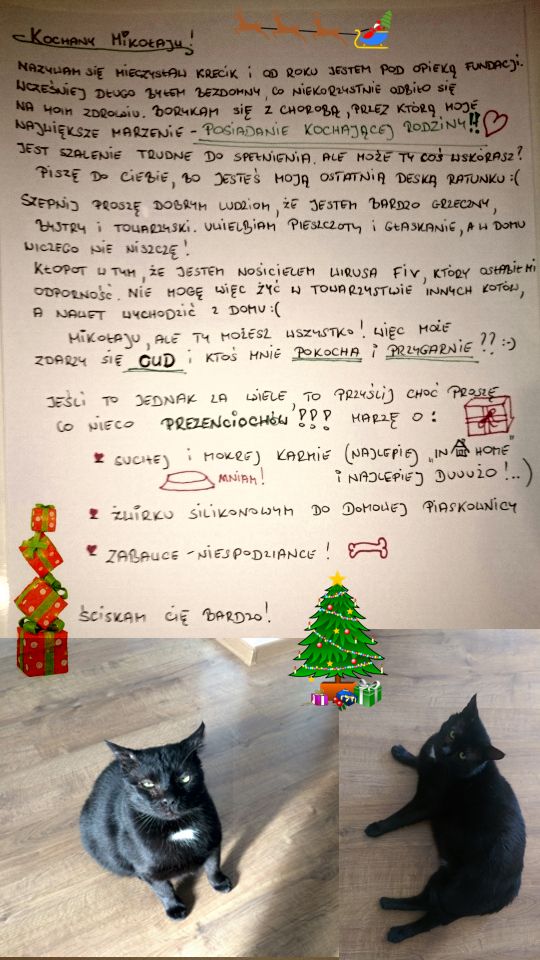 Kochany Mikołaju!
Nazywam się Mieczysław Krecik i od roku jestem pod opieką fundacji.
Wcześniej długo byłem bezdomny, co niekorzystnie odbiło się
na moim zdrowiu. Borykam się z chorobą, przez którą moje
największe marzenie - posiadanie kochającej rodziny!!
jest szalenie trudne do spełnienia. Ale może Ty coś wskórasz?
Piszę do Ciebie, bo jesteś moją ostatnią deską ratunku :(
Szepnij proszę dobrym ludziom, że jestem bardzo grzeczny,
bystry i towarzyski. Uwielbiam pieszczoty i głaskanie, a w domu
niczego nie niszczę!
Kłopot w tym, że jestem nosicielem wirusa Fiv, który osłabił mi
odporność. Nie mogę więc żyć w towarzystwie innych kotów,
a nawet wychodzić z domu :(
Mikołaju, ale Ty możesz wszystko! Więc może
zdarzy się CUD i ktoś mnie pokocha i przygarnie?? :-)
Jeśli to jednak za wiele, to przyślij choć proszę
co nieco prezenciochów!?! Marzę o:
suchej i mokrej karmie (najlepiej "in home"
mniam! i najlepiej duuużo!..)
żwirku silikonowym do domowej piaskownicy
zabawce - niespodziance!
Ściskam Cię bardzo!